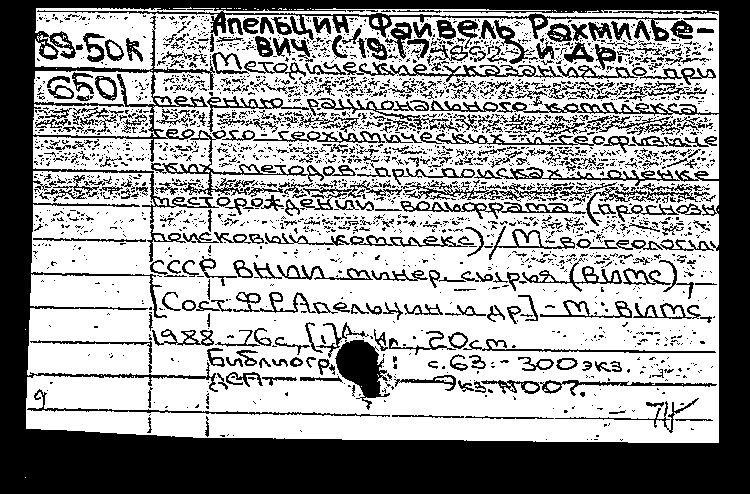 Апельцин, Файвель Рахмилье-
89-50к вич (1917-1992) и др.
6501 Методические указания по при
менению рационального комплекса
геолого-геохимических и геофизиче
ских методов при поисках и оценке
месторождений вольфрама (прогнозно
поисковый комплекс) / М-во геологии
СССР, ВНИИ минер. сырья (ВИМС);
[Сост. Ф.Р. Апельцин и др.] - М.: ВИМС,
1988. - 76 с., [1] л. ил.; 20 см.
Библиогр.: с. 63. - 300 экз.
ДСП. Экз. N007.